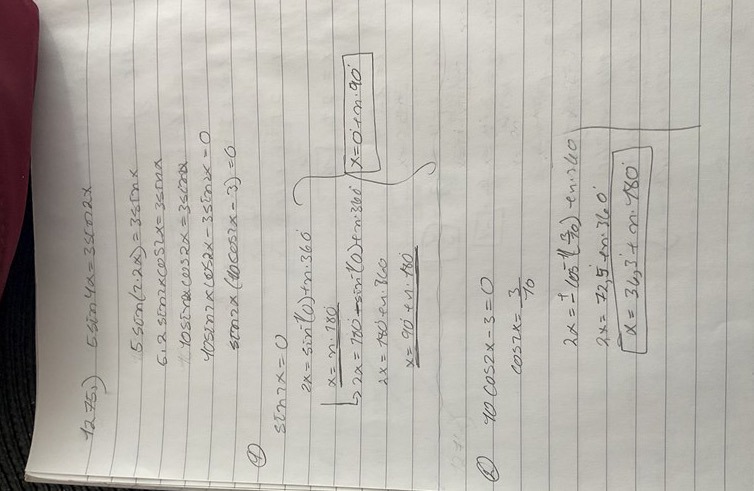 1275.) 5sin4x=3sin2x
5sin(2·2x)=3sinx
5·2sin2xcos2x=3sinx
10sin2xcos2x=3sin2x
10sin2xcos2x-3sin2x=0
sin2x(10cos2x-3)=0
① sin2x=0
2x=sin⁻¹(0)+n·360°
x=n·180°
2x=180°-sin⁻¹(0)+n·360°
x=0°+n·90°
2x=180°+n·360
x=90°+n·180°
② 10·cos2x-3=0
cos2x=3/10
2x=±cos⁻¹(3/10)+n·360
2x=72,5°+n·360°
x=36,3°+n·180°